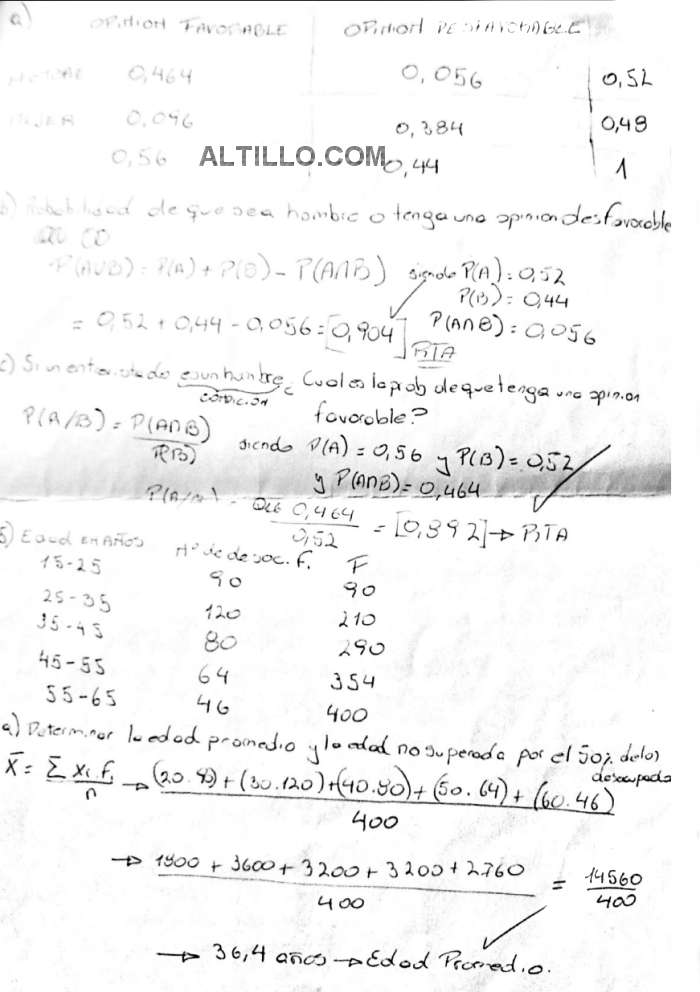 a) OPINION FAVORABLE OPINION DESFAVORABLE
0,464 0,056 0,52
MUJER 0,096 0,384 0,48
0,56 ALTILLO.COM 0,44 1
b) Probabilidad de que sea hombre o tenga una opinion desfavorable
P(AUB) = P(A) + P(B) - P(A∩B) siendo P(A) = 0,52
P(B) = 0,44
= 0,52 + 0,44 - 0,056 = [0,904] RTA P(A∩B) = 0,056
c) Si un entrevistado es un hombre, Cual es la prob de que tenga una opinion
CONDICION
favorable?
P(A/B) = P(A∩B) siendo P(A) = 0,56 y P(B) = 0,52
P(B) y P(A∩B) = 0,464
0,464 = [0,892] → RTA
0,52
5) Edad EN AÑOS N° de desoc. f. F
15-25 90 90
25-35 120 210
35-45 80 290
45-55 64 354
55-65 46 400
a) Determinar la edad promedio y la edad no superada por el 50% de los
desocupados
X̄ = Σ Xi fi → (20.90) + (30.120) + (40.80) + (50.64) + (60.46)
n 400
→ 1800 + 3600 + 3200 + 3200 + 2760 = 14560
400 400
→ 36,4 años → Edad Promedio.